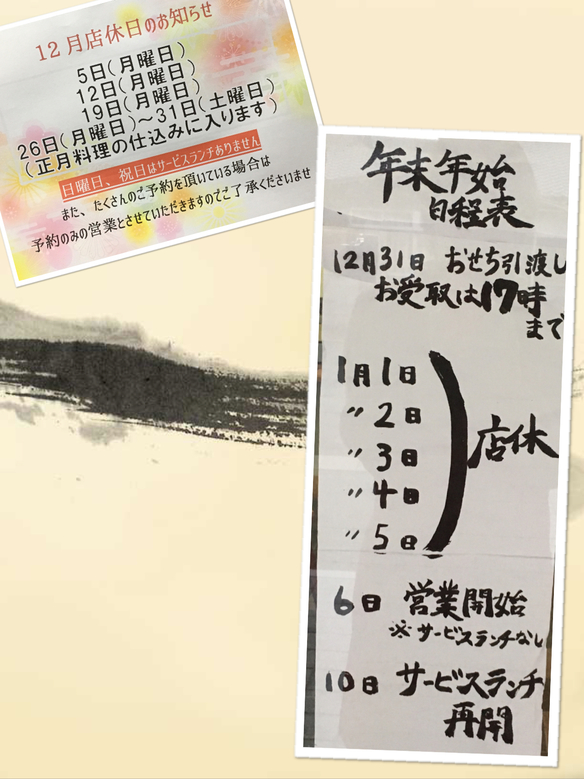 12月店休日のお知らせ
5日(月曜日)
12日(月曜日)
19日(月曜日)
26日(月曜日)～31日(土曜日)
(正月料理の仕込みに入ります)
日曜日、祝日はサービスランチありません
また、たくさんのご予約を頂いている場合は
予約のみの営業とさせていただきますのでご了承くださいませ
年末年始
日程表
12月31日 おせち引渡し
お受取は17時
まで
1月1日
〃2日
〃3日
〃4日
〃5日
店休
6日 営業開始
※サービスランチなし
10日 サービスランチ
再開